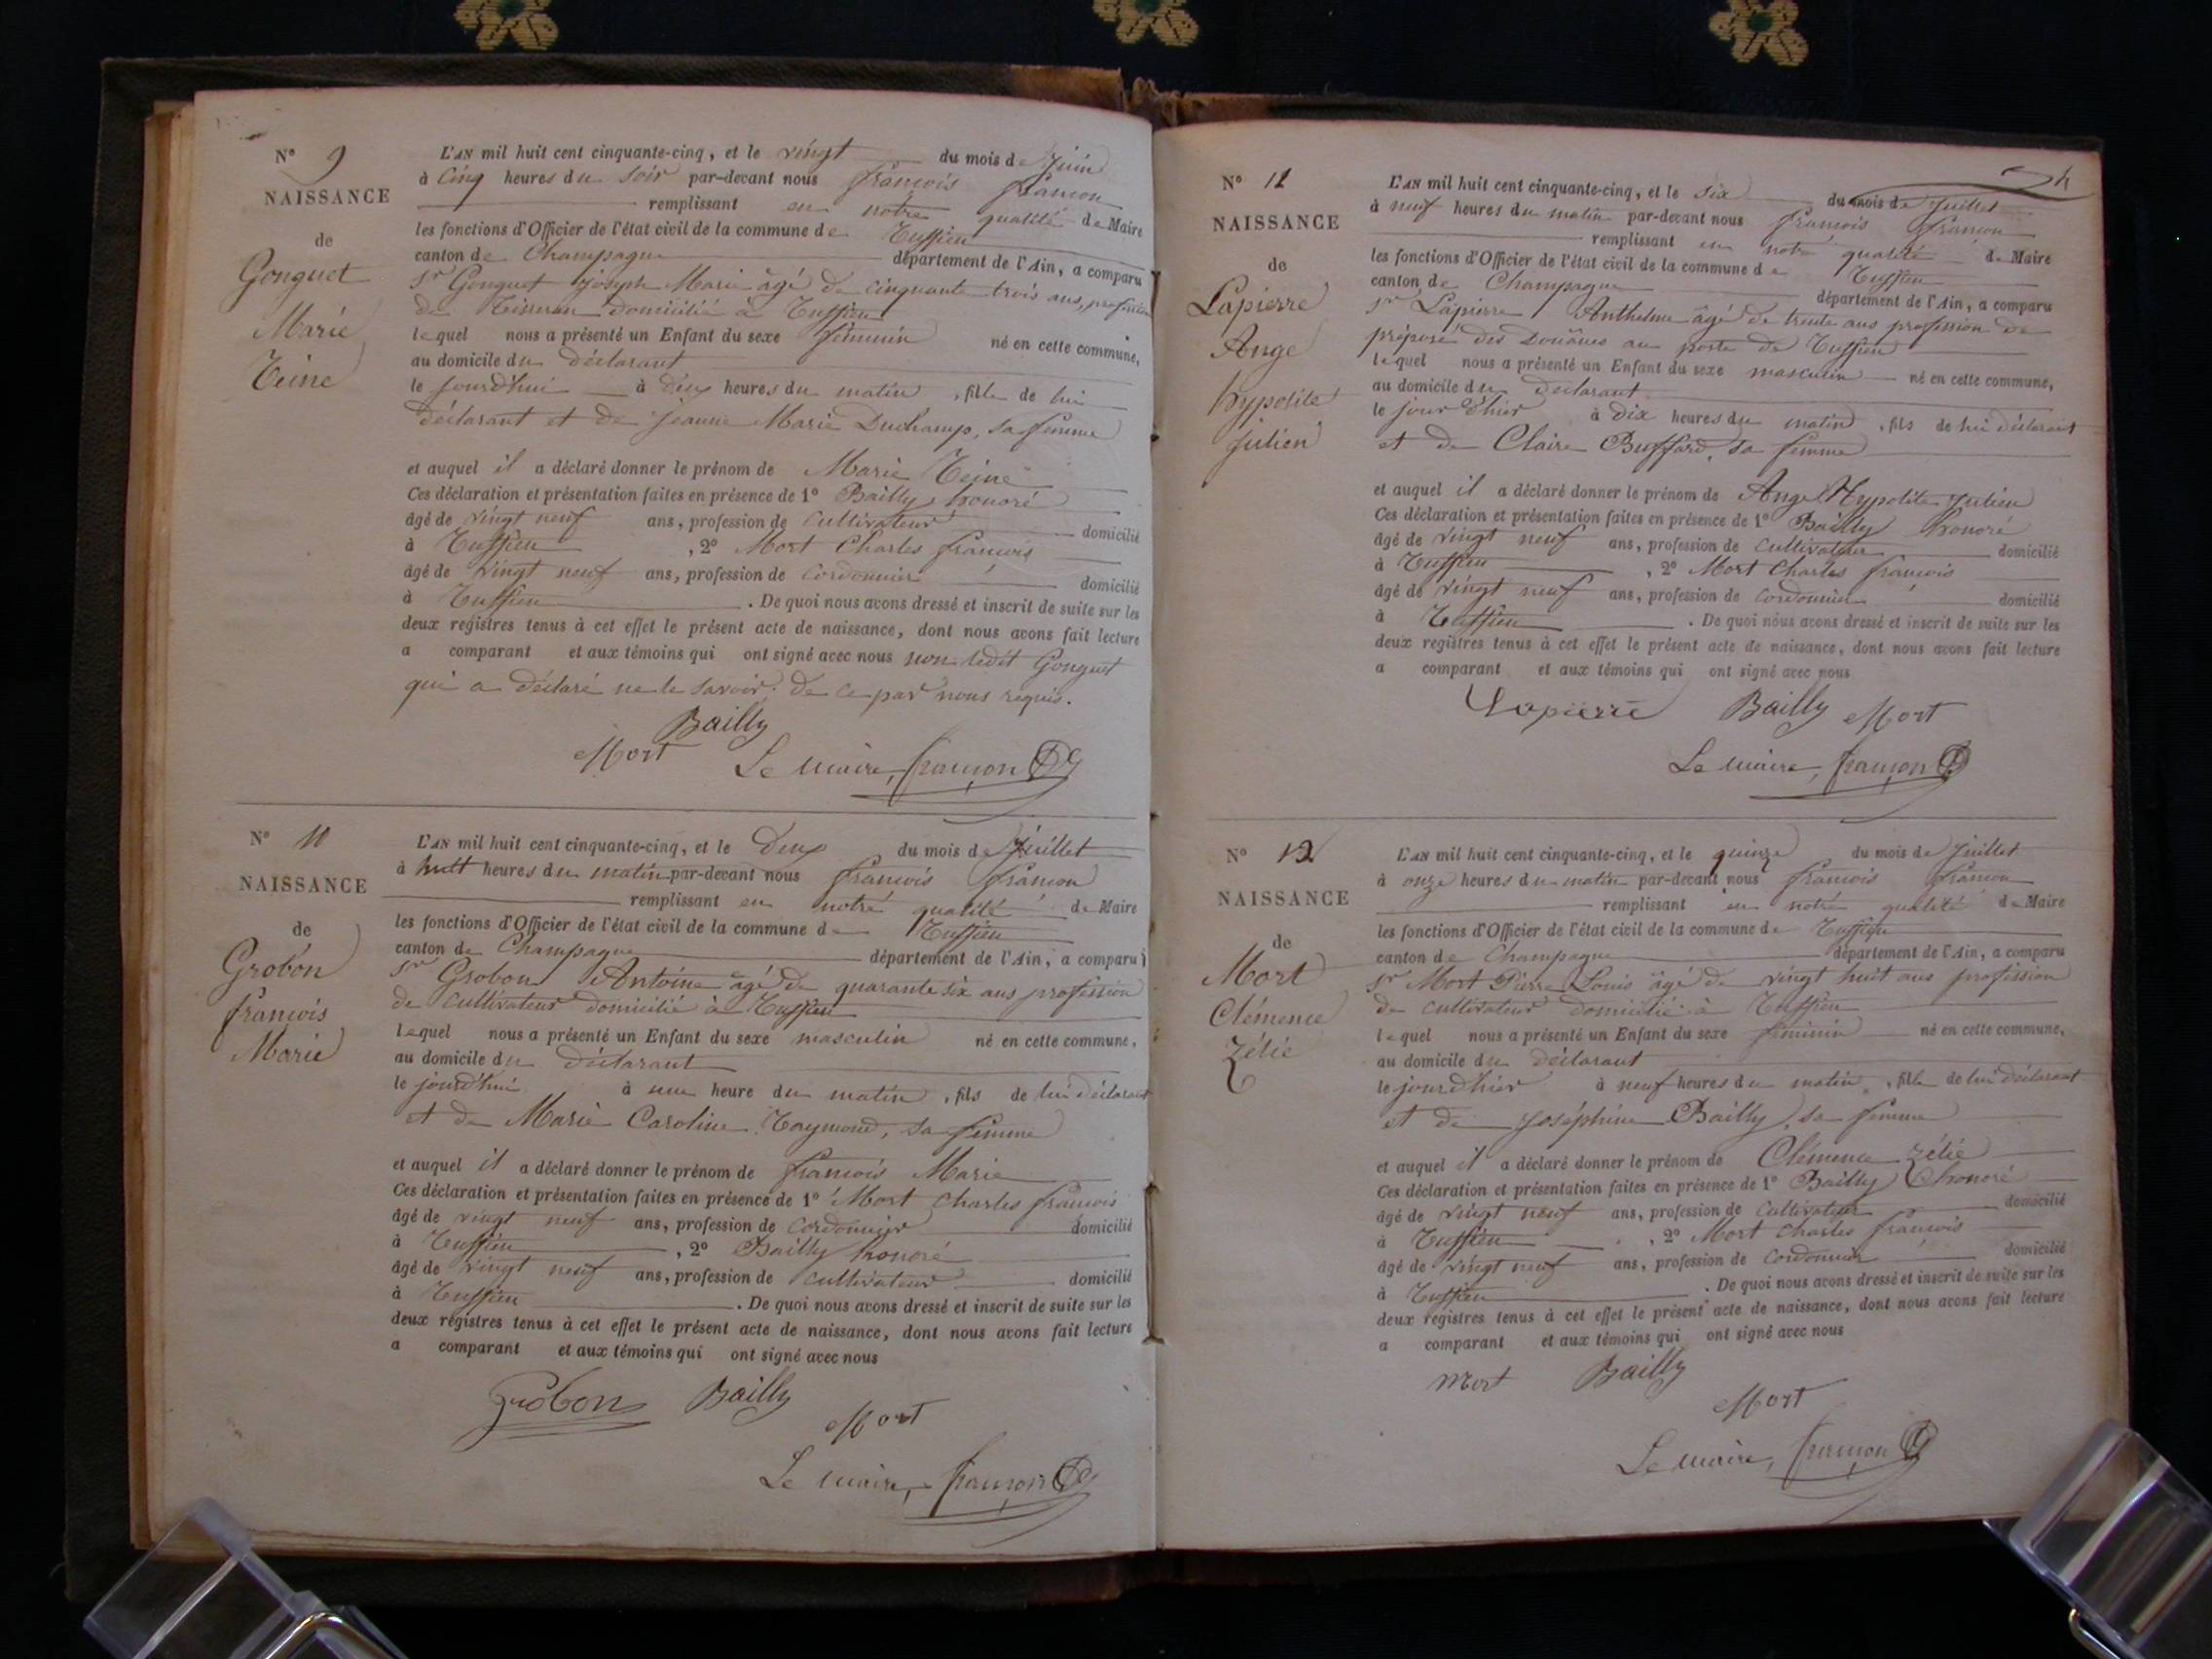 N° 9
NAISSANCE
de
Gonguet
Marie
L'AN mil huit cent cinquante-cinq, et le vingt du mois de Juin
à Cinq heures du Soir par-devant nous françois françon
remplissant en notre qualité de Maire
les fonctions d'Officier de l'état civil de la commune de
canton de Champagne département de l'Ain, a comparu
sr Gonguet joseph Marie âgé de cinquante trois ans, profession
de domicilié à
lequel nous a présenté un Enfant du sexe féminin né en cette commune,
au domicile du déclarant
le jourd'hui à deux heures du matin, fille de lui
déclarant et de jeanne Marie Duchamp, sa femme
et auquel il a déclaré donner le prénom de Marie
Ces déclaration et présentation faites en présence de 1° Bailly honoré
âgé de vingt neuf ans, profession de cultivateur domicilié
à , 2° Mort Charles françois
âgé de vingt neuf ans, profession de Cordonnier domicilié
à . De quoi nous avons dressé et inscrit de suite sur les
deux registres tenus à cet effet le présent acte de naissance, dont nous avons fait lecture
a comparant et aux témoins qui ont signé avec nous non ledit Gonguet
qui a déclaré ne le savoir. de ce par nous requis.
Bailly
Mort Le maire, françon
N° 10
NAISSANCE
de
Grobon
françois
Marie
L'AN mil huit cent cinquante-cinq, et le deux du mois de Juillet
à huit heures du matin par-devant nous françois françon
remplissant en notre qualité de Maire
les fonctions d'Officier de l'état civil de la commune de
canton de Champagne département de l'Ain, a comparu
sr Grobon Antoine âgé de quarante six ans profession
de cultivateur domicilié à
lequel nous a présenté un Enfant du sexe masculin né en cette commune,
au domicile du déclarant
le jourd'hui à une heure du matin, fils de lui déclarant
et de Marie Caroline sa femme
et auquel il a déclaré donner le prénom de françois Marie
Ces déclaration et présentation faites en présence de 1° Mort Charles françois
âgé de vingt neuf ans, profession de Cordonnier domicilié
à , 2° Bailly honoré
âgé de vingt neuf ans, profession de cultivateur domicilié
à . De quoi nous avons dressé et inscrit de suite sur les
deux registres tenus à cet effet le présent acte de naissance, dont nous avons fait lecture
a comparant et aux témoins qui ont signé avec nous
Grobon Bailly
Mort
Le maire, françon
N° 11
NAISSANCE
de
Lapierre
Ange
hypolite
julien
L'AN mil huit cent cinquante-cinq, et le six du mois de Juillet
à neuf heures du matin par-devant nous françois françon
remplissant en notre qualité de Maire
les fonctions d'Officier de l'état civil de la commune de
canton de Champagne département de l'Ain, a comparu
sr Lapierre Anthelme âgé de trente ans profession de
préposé des Douânes au poste de
lequel nous a présenté un Enfant du sexe masculin né en cette commune,
au domicile du déclarant
le jour d'hier à dix heures du matin, fils de lui déclarant
et de Claire Buffard, sa femme
et auquel il a déclaré donner le prénom de Ange Hypolite Julien
Ces déclaration et présentation faites en présence de 1° Bailly honoré
âgé de vingt neuf ans, profession de cultivateur domicilié
à , 2° Mort Charles françois
âgé de vingt neuf ans, profession de Cordonnier domicilié
à . De quoi nous avons dressé et inscrit de suite sur les
deux registres tenus à cet effet le présent acte de naissance, dont nous avons fait lecture
a comparant et aux témoins qui ont signé avec nous
Lapierre Bailly Mort
Le maire, françon
N° 12
NAISSANCE
de
Mort
Clémence
Zélie
L'AN mil huit cent cinquante-cinq, et le quinze du mois de Juillet
à onze heures du matin par-devant nous françois françon
remplissant en notre qualité de Maire
les fonctions d'Officier de l'état civil de la commune de
canton de Champagne département de l'Ain, a comparu
sr Mort Pierre Louis âgé de vingt huit ans profession
de cultivateur domicilié à
lequel nous a présenté un Enfant du sexe féminin né en cette commune,
au domicile du déclarant
le jourd'hier à neuf heures du matin, fille de lui déclarant
et de joséphine Bailly, sa femme
et auquel il a déclaré donner le prénom de Clémence Zélie
Ces déclaration et présentation faites en présence de 1° Bailly honoré
âgé de vingt neuf ans, profession de cultivateur domicilié
à , 2° Mort Charles françois
âgé de vingt neuf ans, profession de Cordonnier domicilié
à . De quoi nous avons dressé et inscrit de suite sur les
deux registres tenus à cet effet le présent acte de naissance, dont nous avons fait lecture
a comparant et aux témoins qui ont signé avec nous
Mort Bailly
Mort
Le maire, françon